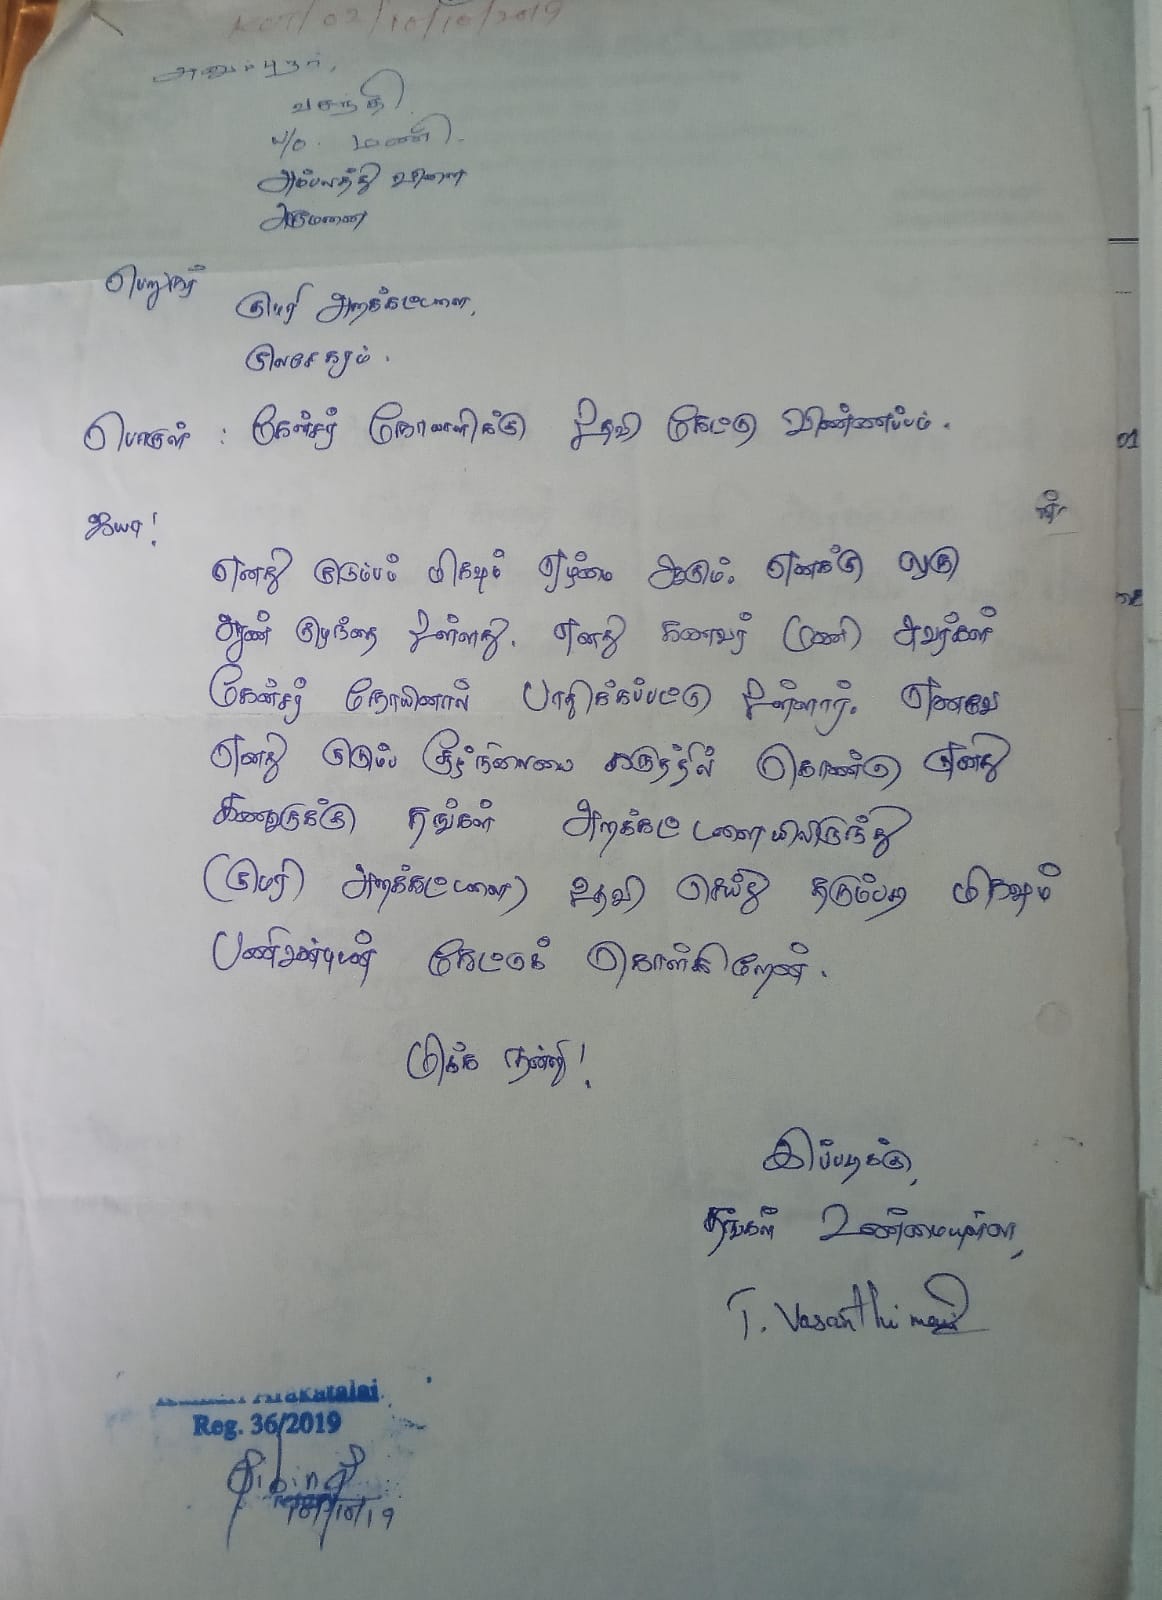 KCT/02/10/10/2019
அனுப்புநர்,
வசந்தி
W/o. மணி.
அம்பலத்து விளை
அருமனை
பெறுநர்
குமரி அறக்கட்டளை,
குலசேகரம்.
பொருள் : கேன்சர் நோயாளிக்கு உதவி கேட்டு விண்ணப்பம்.
ஐயா!
எனது குடும்பம் மிகவும் ஏழ்மை ஆகும். எனக்கு ஒரு
ஆண் குழந்தை உள்ளது. எனது கணவர் மணி அவர்கள்
கேன்சர் நோயினால் பாதிக்கப்பட்டு உள்ளார். எனவே
எனது குடும்ப சூழ்நிலையை கருத்தில் கொண்டு எனது
கணவருக்கு தங்கள் அறக்கட்டளையிலிருந்து
(குமரி அறக்கட்டளை) உதவி செய்து தரும்படி மிகவும்
பணிவன்புடன் கேட்டுக் கொள்கிறேன்.
மிக்க நன்றி!
இப்படிக்கு,
தங்கள் உண்மையுள்ள,
T. Vasanthi mani
Reg. 36/2019
10/10/19